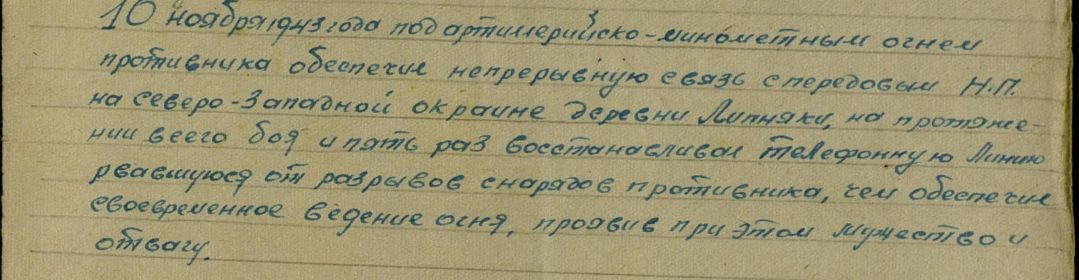 10 ноября 1943 года под артиллерийско-минометным огнем
противника обеспечил непрерывную связь с передовым Н.П.
на северо-Западной окраине деревни Липняки, на протяже-
нии всего боя и пять раз восстанавливал телефонную Линию
рвавшуюся от разрывов снарядов противника, чем обеспечил
своевременное ведение огня, проявив при этом мужество и
отвагу.